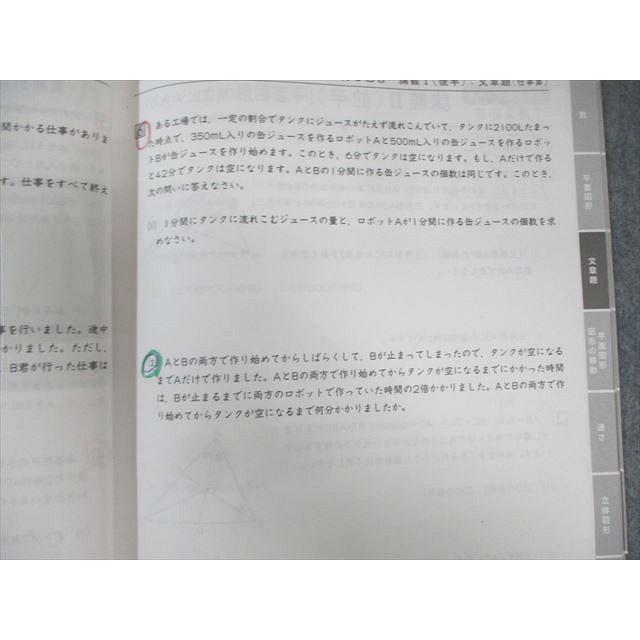 講義Ⅰ(後半):文章題(仕事算)
6 ある工場では、一定の割合でタンクにジュースがたえず流れこんでいて、タンクに2100Lたまっ
た時点で、350mL入りの缶ジュースを作るロボットAと500mL入りの缶ジュースを作るロボッ
トBが缶ジュースを作り始めます。このとき、6分でタンクは空になります。もし、Aだけで作る
と42分でタンクは空になります。AとBの1分間に作る缶ジュースの個数は同じです。このとき、
次の問いに答えなさい。
(1) 1分間にタンクに流れこむジュースの量と、ロボットAが1分間に作る缶ジュースの個数を求
めなさい。
(2) AとBの両方で作り始めてからしばらくして、Bが止まってしまったので、タンクが空になる
までAだけで作りました。AとBの両方で作り始めてからタンクが空になるまでにかかった時間
は、Bが止まるまでに両方のロボットで作っていた時間の2倍かかりました。AとBの両方で作
り始めてからタンクが空になるまで何分かかりましたか。
間かかる仕事がありま
す。仕事をすべて終え
事を行いました。途中
かりました。ただし、
、B君が行った仕事は
数
平面図形
文章題
平面図形
図形の移動
速さ
立体図形